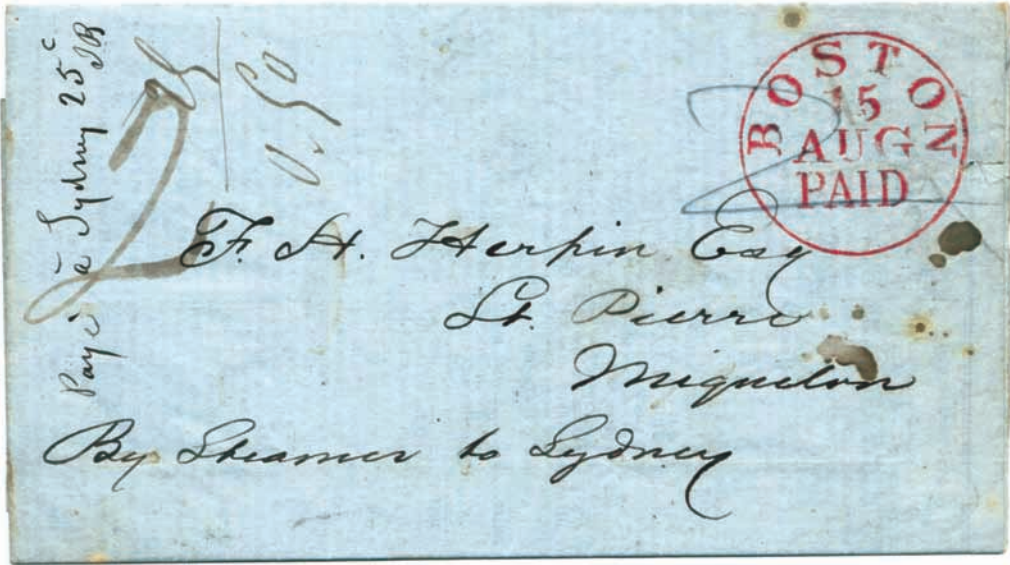 Payé à Sydney 25c
0.50
BOSTON
15
AUG
PAID
F. H. Herpin Esq
St. Pierre
Miquelon
By Steamer to Sydney